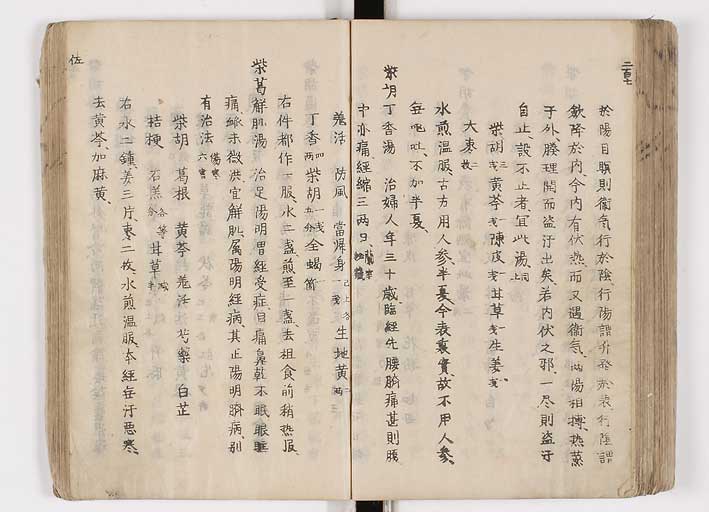 二百七
於陽目瞑則衞氣行於陰行陽謂升發於表行陰謂
歛降於內今內有伏熱而又遇衞氣兩陽相搏熱蒸
于外腠理開而盜汗出矣若內伏之邪一尽則盜汗
自止設不止者宜此湯
柴胡 黃芩 陳皮 甘草 生姜
大棗
水煎溫服古方用人参半夏今表裏實故不用人参
無嘔吐不加半夏
柴胡丁香湯 治婦人年三十歳臨經先腰臍痛甚則腹
中亦痛經縮三兩日
羗活 防風 當帰身 生地黃
丁香 柴胡 全蝎
右件都作一服水二盞煎至一盞去柤食前稍热服
柴葛解肌湯 治足陽明胃經受症目痛鼻乾不眠眼眶
痛脉來微洪宜解肌属陽明經病其正陽明腑病別
有治法
柴胡 葛根 黃芩 羗活 芍藥 白芷
桔梗 石羔 甘草
右水二鍾姜三片棗二枚水煎溫服本經無汗悪寒
去黃芩加麻黃
佐